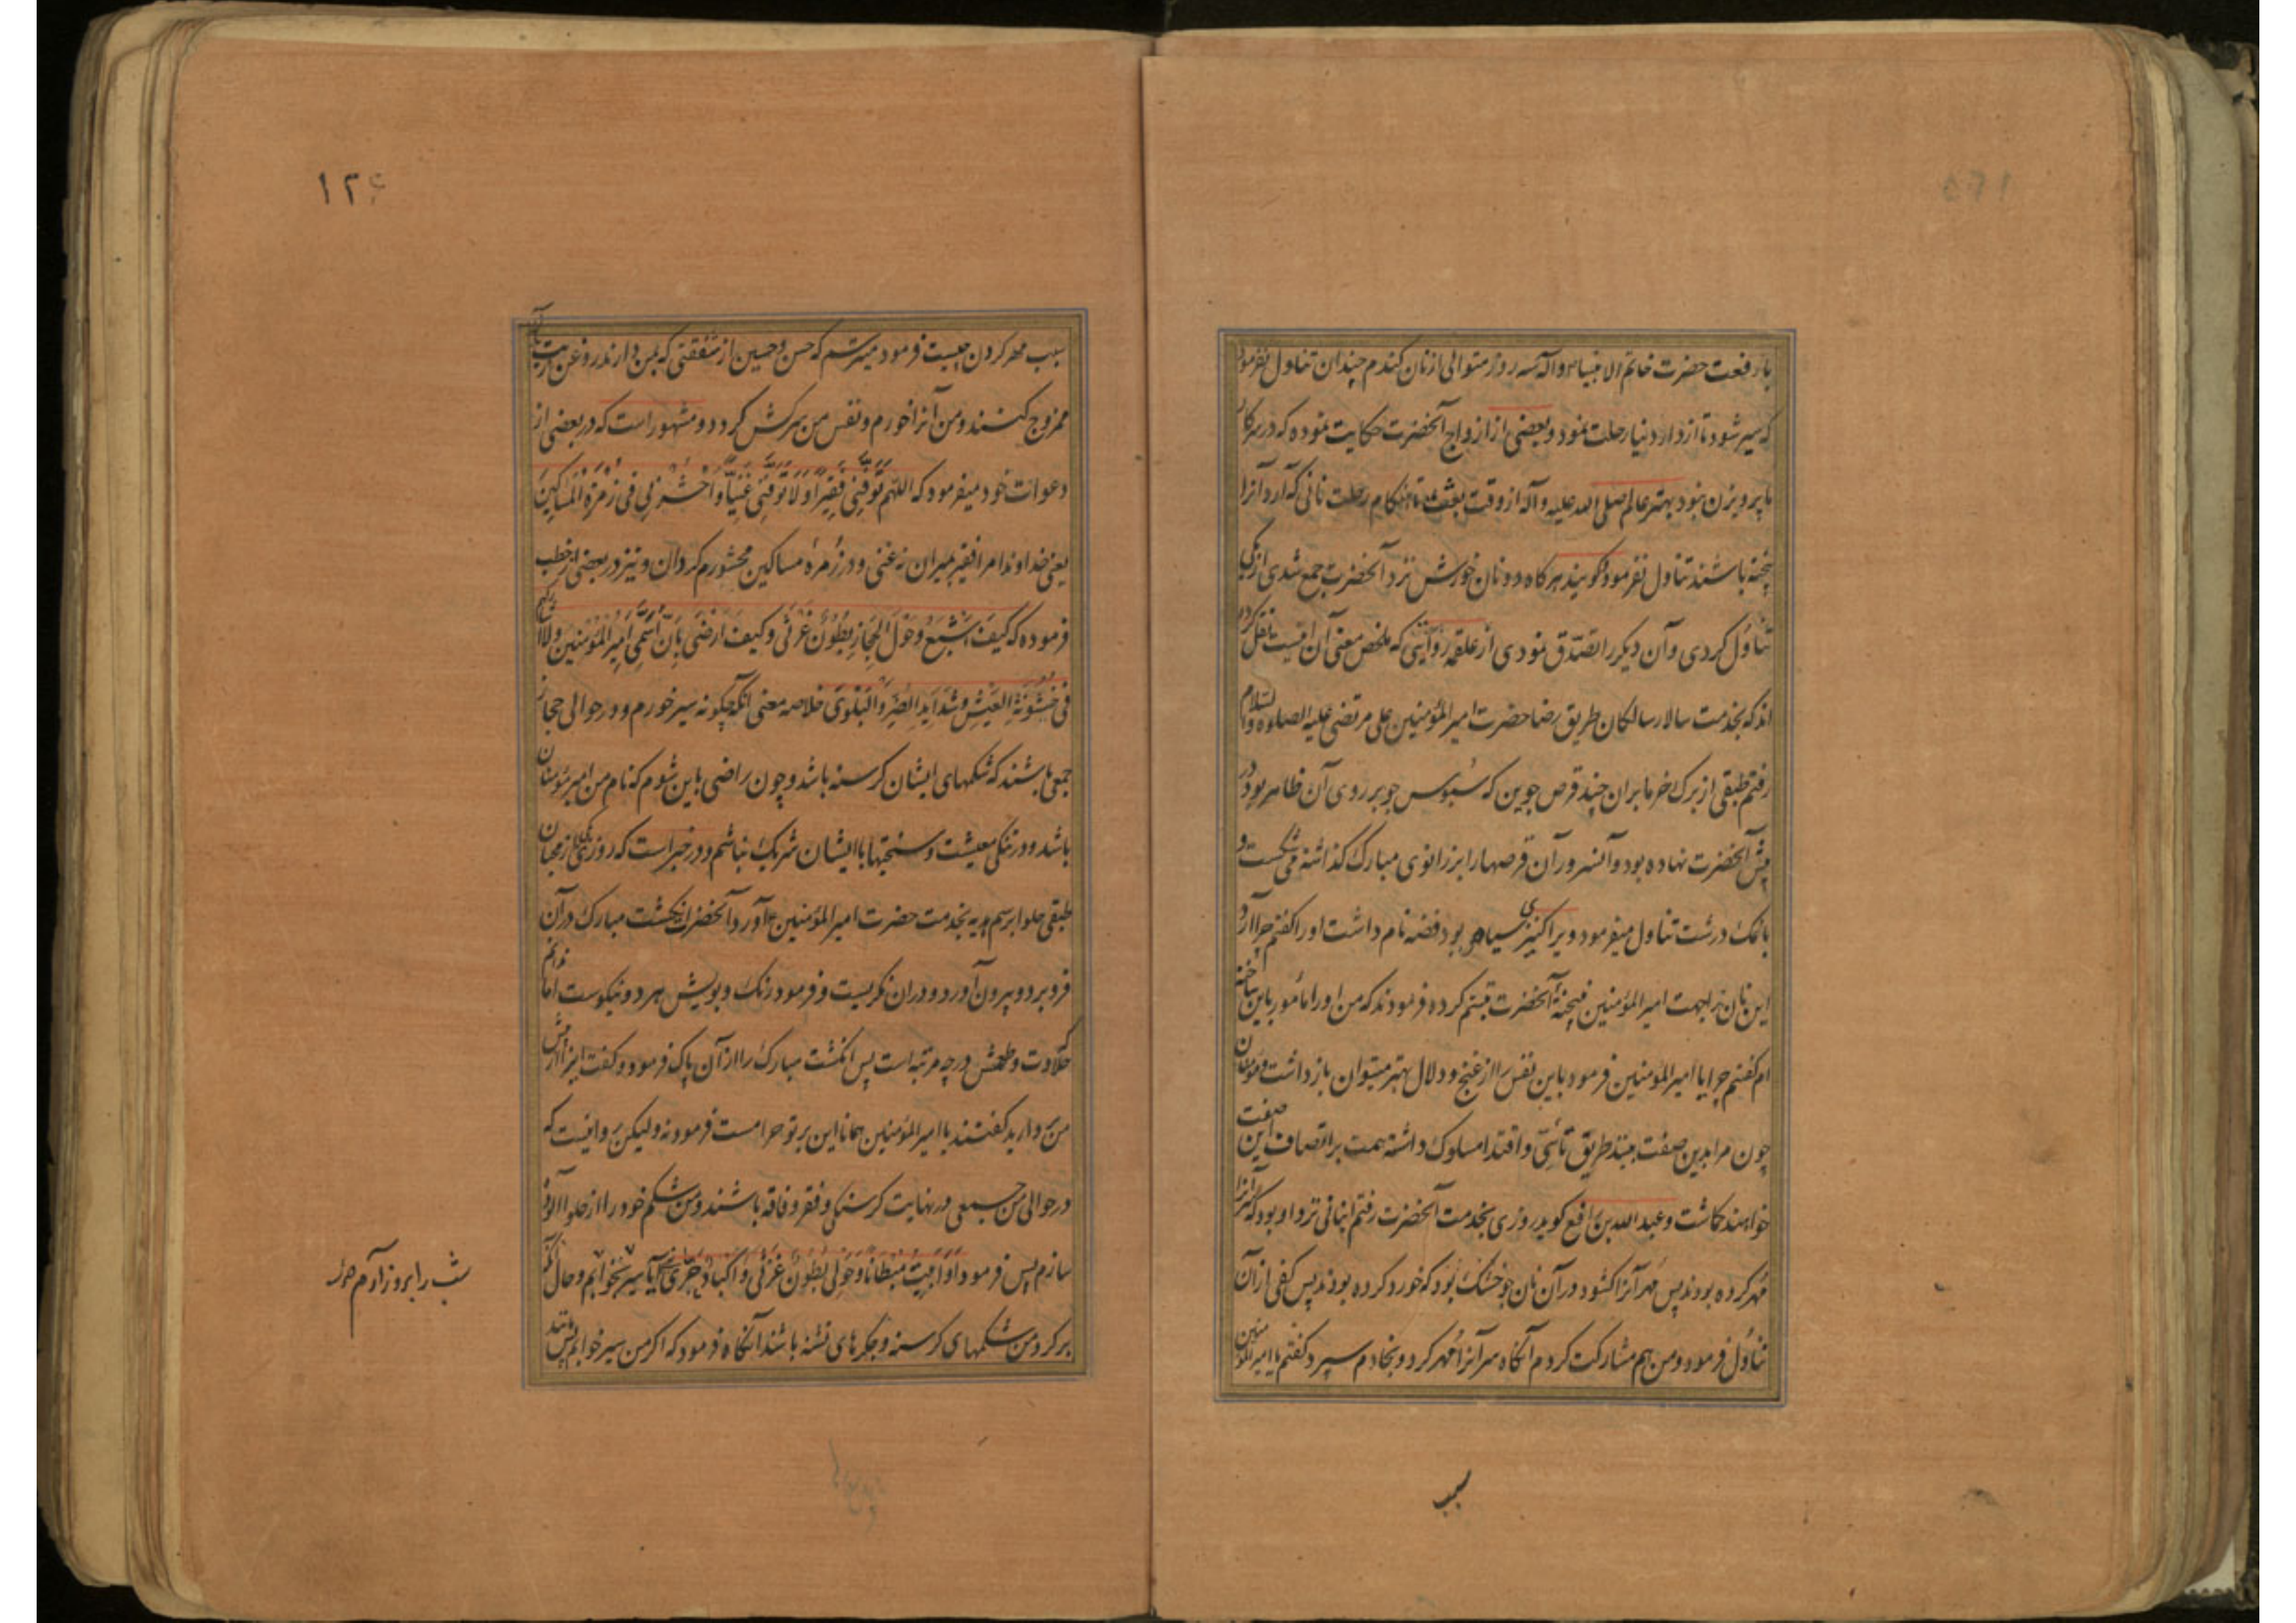 بارفعت حضرت خاتم الانبیا ص وآله سه روز متوالی از نان کندم چندان تناول نفرمود
که سیر شود تا از دار دنیا رحلت نمود و بعضی از ازواج آنحضرت حکایت نموده که در سرکار
ما پرویزن نبود مهتر عالم صلی الله علیه وآله از وقت بعثت تا هنکام رحلت نانی که آرد آنرا
پخته باشند تناول نفرمود کویند هرکاه دو نان خورش نزد آنحضرت جمع شدی از یکی
تناول کردی وآن دیکر را تصدق نمودی از علقمه روایتی که ملخص معنی آن اینست نقل کرده
اند که بخدمت سالار سالکان طریق رضا حضرت امیر المؤمنین علی مرتضی علیه الصلوه والسلام
رفتم طبقی از برک خرما بران چند قرص جوین که سبوس جو بر روی آن ظاهر بود در
پیش آنحضرت نهاده بود وآنسرور آن قرصها را بر زانوی مبارک کذاشته می شکست و
با نمک درشت تناول میفرمود ویرا کنیزی سیاه بود فضه نام داشت او را کفتم چرا آرد
این نان را بجهت امیر المؤمنین نبیخته آنحضرت تبسم کرده فرمودند که من او را مأمور باین ساخته
ام کفتم چرا یا امیر المؤمنین فرمود باین نفس را از غنج و دلال بهتر میتوان بازداشت ومؤمنان
چون مرا بدین صفت بینند طریق تأسی و اقتدا مسلوک داشته همت بر اتصاف این صفت
خواهند کماشت وعبد الله بن رافع کوید روزی بخدمت آنحضرت رفتم انبانی نزد او بود که سر آنرا
مهر کرده بودند پس مهر آنرا کشود در آن نان جو خشک بود که خورد کرده بودند پس کفی از آن
تناول فرمود و من هم مشارکت کردم آنکاه سر آنرا مهر کرد و بخادم سپرد کفتم یا امیر المؤمنین
سبب
۱۲۶
سبب مهر کردن چیست فرمود میترسم که حسن و حسین از شفقتی که بمن دارند روغن زیت بآن
ممزوج کنند و من آنرا خورم و نفس من سرکش کردد و مشهور است که در بعضی از
دعوات خود میفرمود که اللهم توفنی فقیرا ولا توفنی غنیا واحشرنی فی زمرة المساکین
یعنی خداوندا مرا فقیر بمیران نه غنی و در زمره مساکین محشورم کردان و نیز در بعضی از خطب
فرموده که کیف اشبع وحول الحجاز بطون غرثی وکیف ارضی بان اسمی امیر المؤمنین ولا اشارکهم
فی خشونة العیش وشداید الضر والبلوی خلاصه معنی آنکه چکونه سیر خورم و در حوالی حجاز
جمعی باشند که شکمهای ایشان کرسنه باشد وچون راضی باین شوم که نام من امیر مؤمنان
باشد و در تنکی معیشت و سختیها با ایشان شریک نباشم و در خبر است که روزی یکی از محبان
طبقی حلوا برسم هدیه بخدمت حضرت امیر المؤمنین آورد آنحضرت انکشت مبارک در آن
فرو برد و بیرون آورد و در ان نکریست و فرمود رنک و بویش هر دو نیکوست اما ندانم
که حلاوت وطعمش در چه مرتبه است پس انکشت مبارک را از آن پاک فرمود و کفت اینرا از پیش
من بردارید کفتند یا امیر المؤمنین همانا این بر تو حرامست فرمود نه ولیکن روا نیست که
در حوالی من جمعی در نهایت کرسنکی و فقر و فاقه باشند و من شکم خود را از حلوا
سازم پس فرمود او ابیت مبطانا وحولی بطون غرثی واکباد حری آیا سیر بخوابم وحال آنکه
بر کرد من شکمهای کرسنه و جکرهای تشنه باشند آنکاه فرمود که اکر من سیر خوابم
شب را بروز آرم